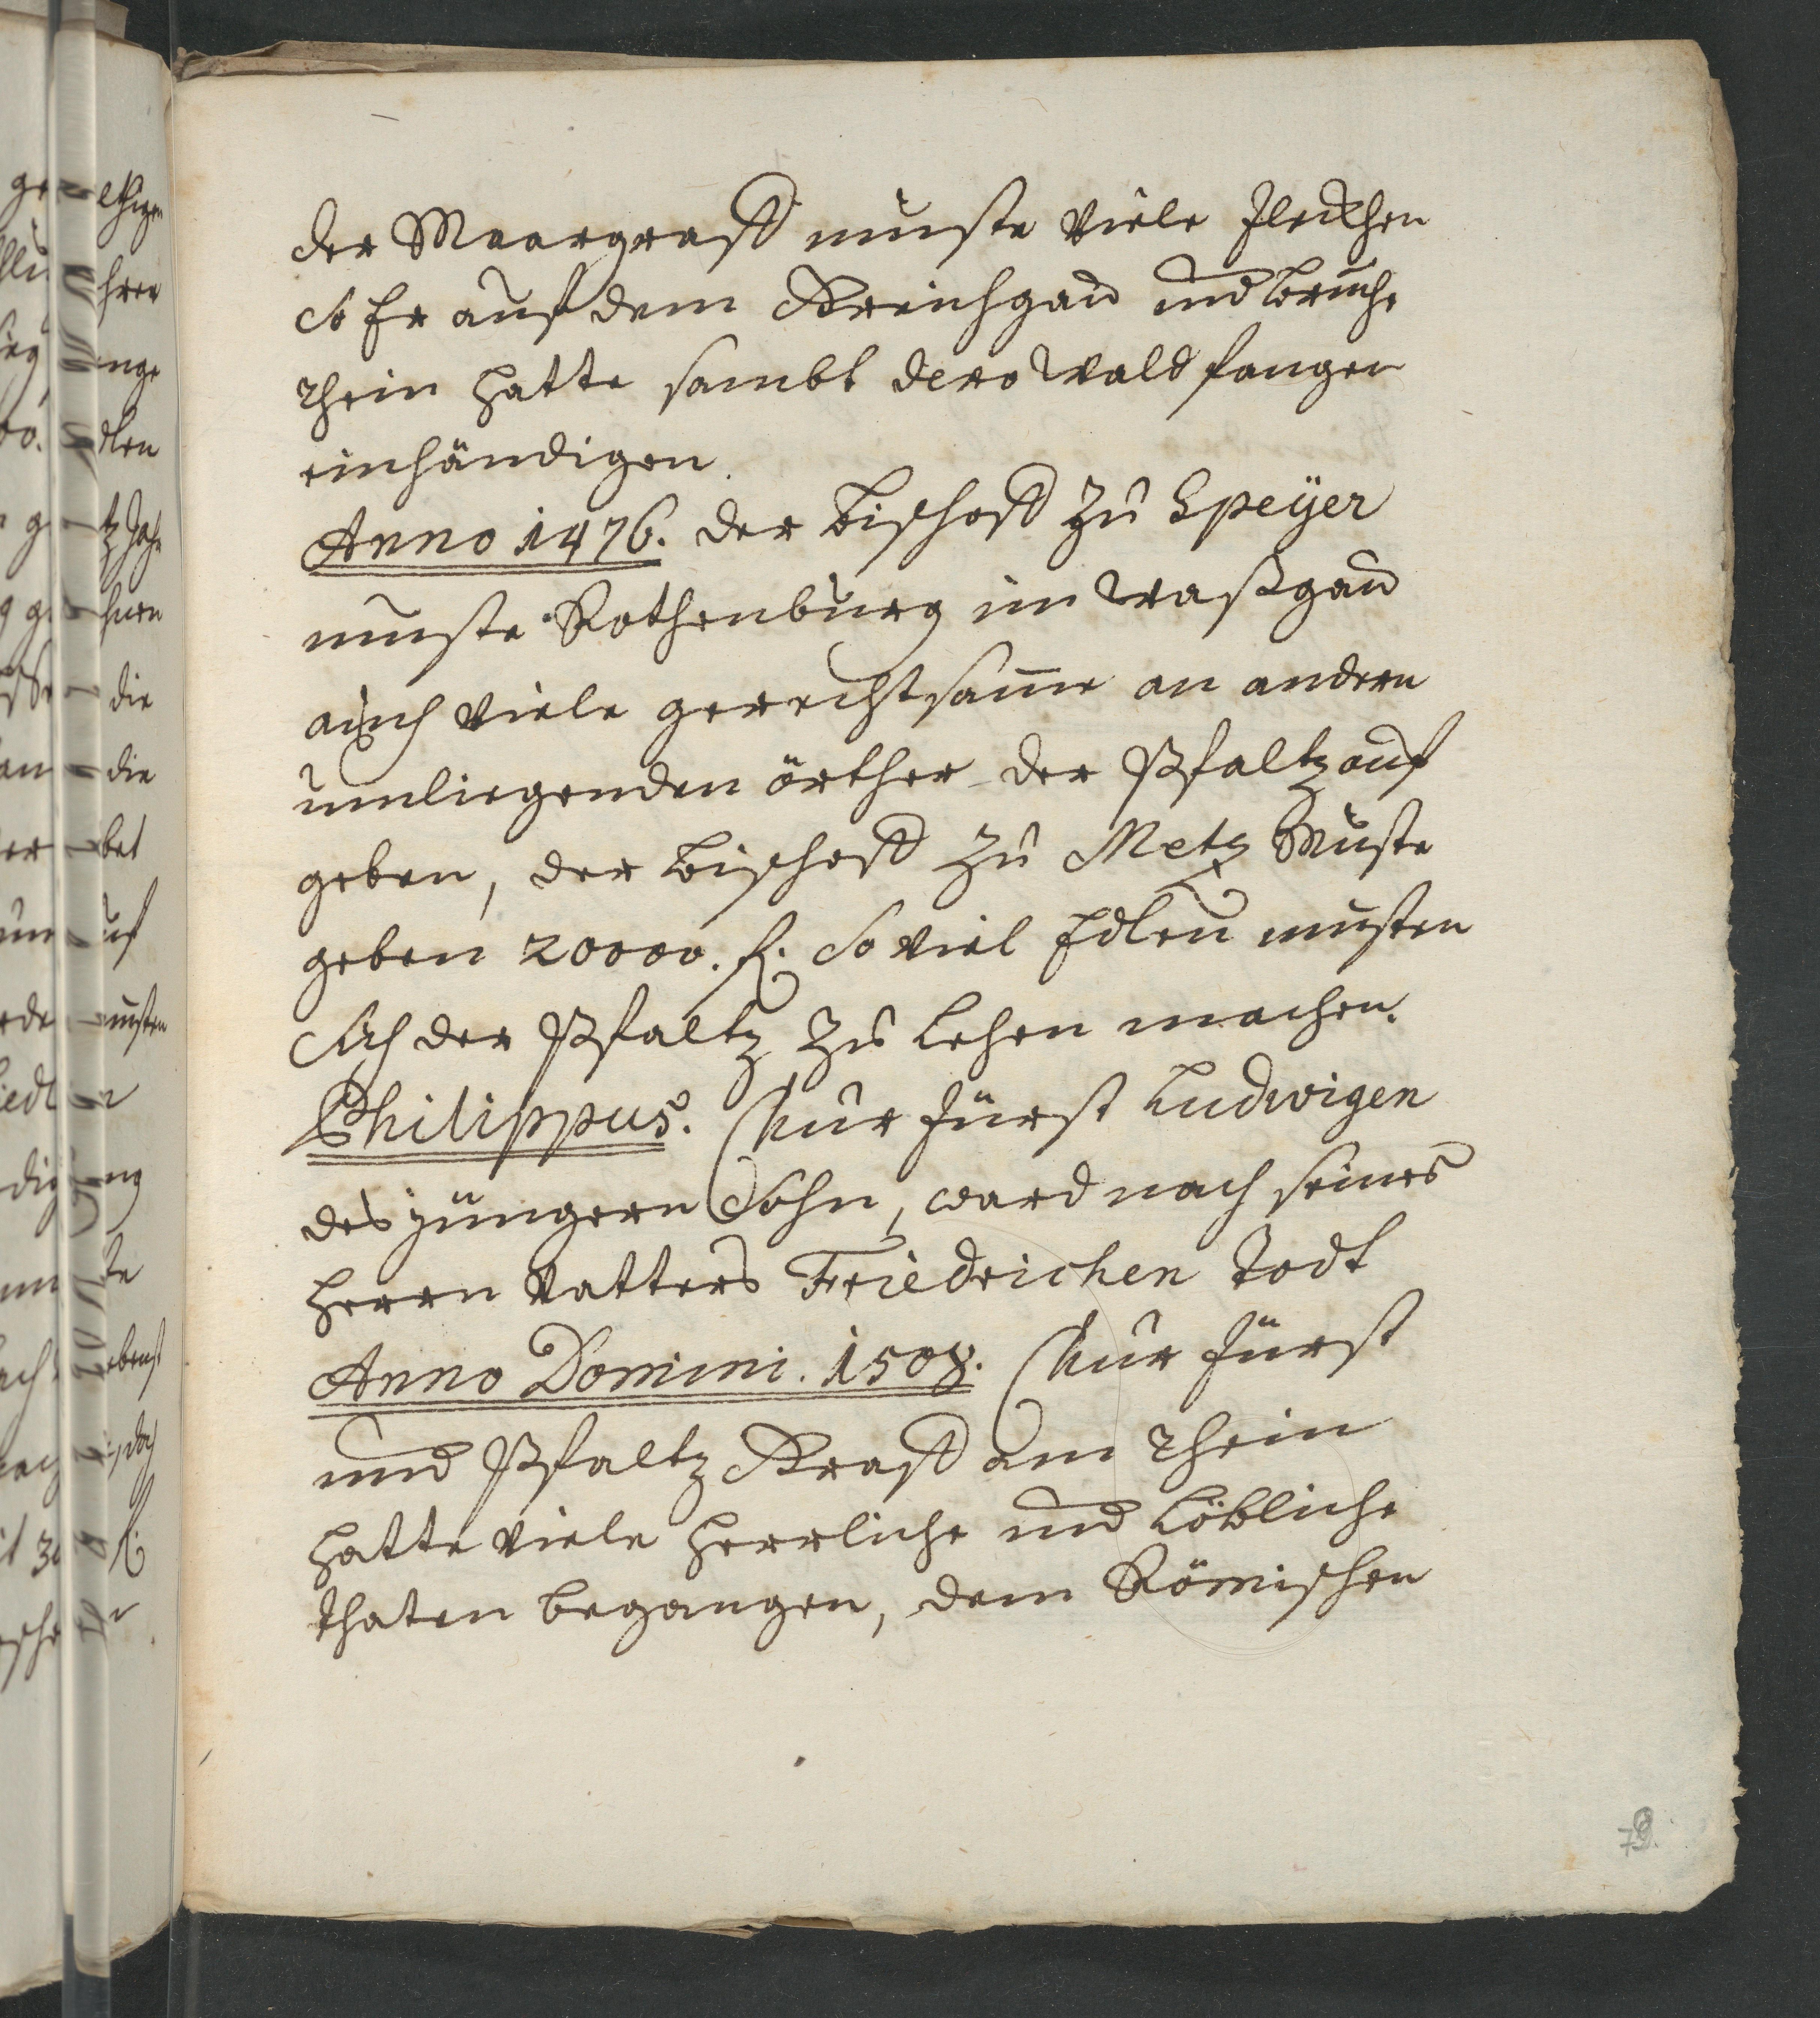 der Maargraff muste viele Fleckhen
So Er auf dem Kreichgau und bruch
rhein hatte sambt dero wald fangen
einhändigen.
Anno 1476. der Bischoff zu Speÿer
muste Rothenburg im waßgau
auch viele gerechtsame an andern
umliegenden örther der Pfaltz auf
geben, der Bischoff zu Metz Muste
geben 20000. fl. So viel Edlen musten
Sich der Pfaltz zu Lehen machen.
Philippus. Chur fürst Ludwigen
des jüngern Sohn, ward nach seines
Herrn Vatters Friedrichen Todt
Anno Domini. 1508. Chur fürst
und Pfaltz Graff am rhein
hatte viele herrliche und löbliche
thaten begangen, dem Römischen